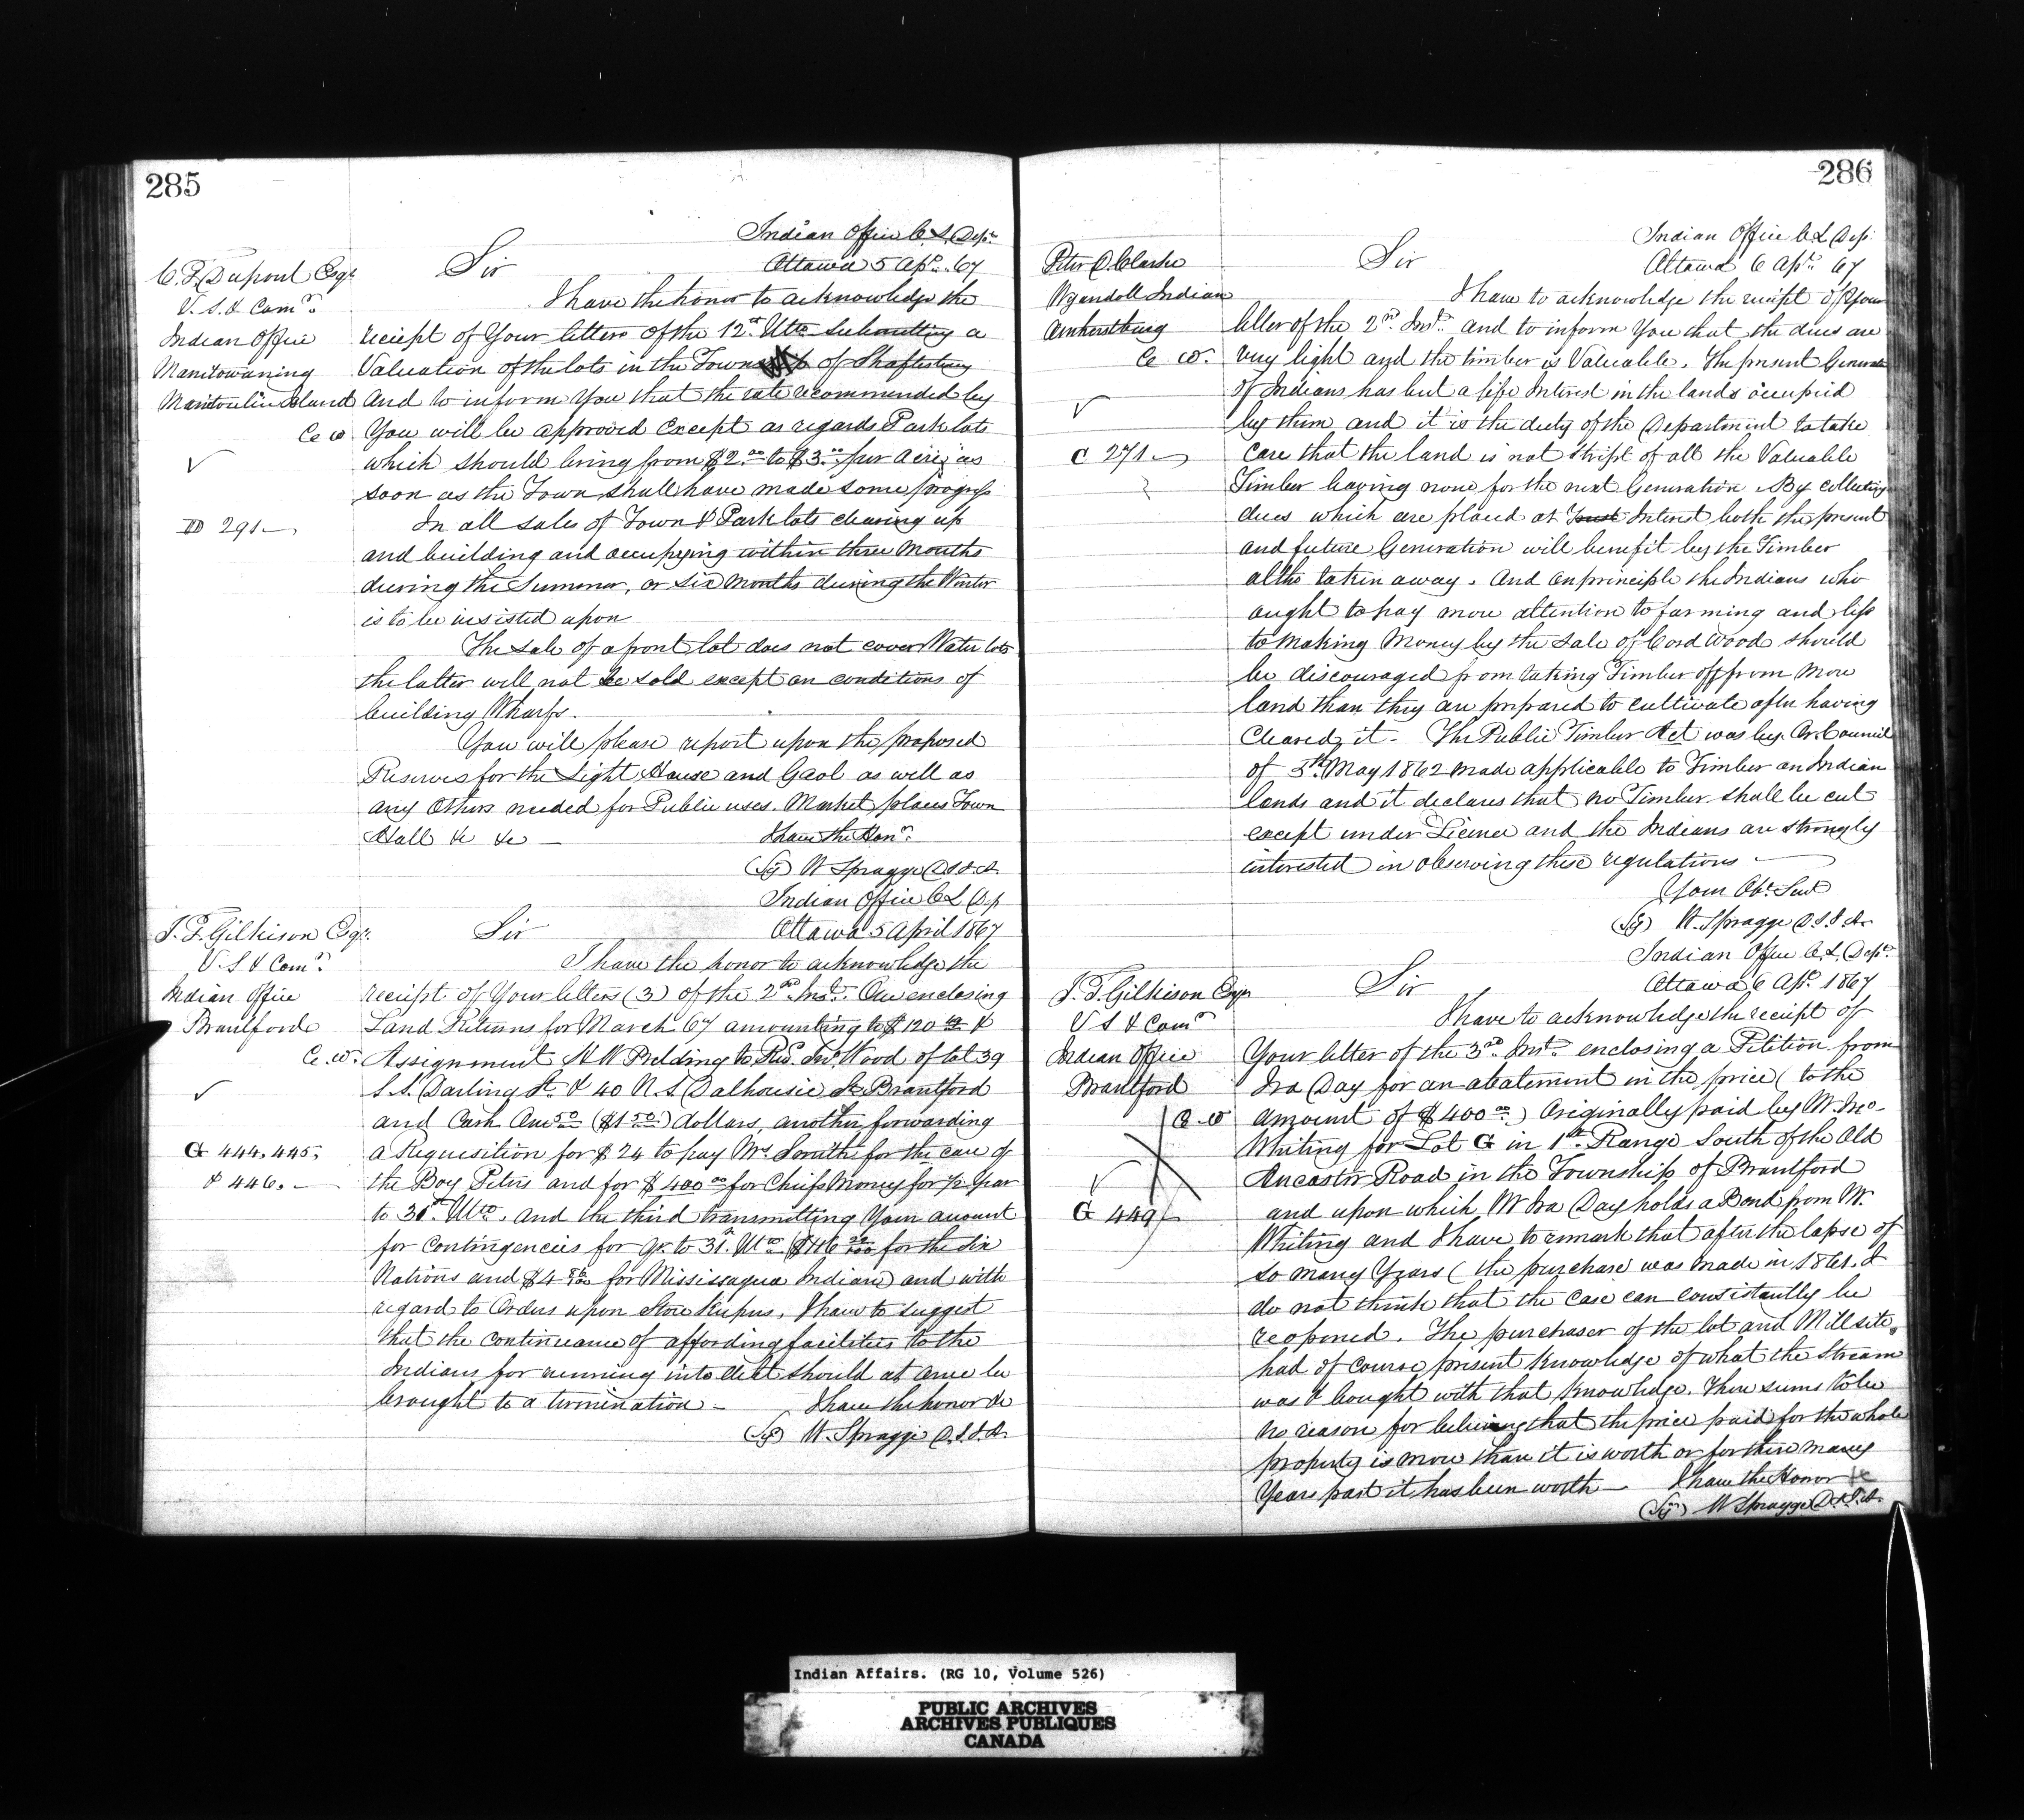 285
Indian Office C. L. Dept.
C. T. Dupont Esqr
Sir
Ottawa 5 Apl. 67
V. S. & Comr.
I have the honor to acknowledge the
Indian Office
receipt of Your letters of the 12th Ulto submitting a
Manitowaning
Valuation of the lots in the Town of Shaftesbury
Manitoulin Island
And to inform You that the rate recommended by
C. W.
You will be approved Except as regards Park lots
which should bring from $2.00 to $3.00 per acre, as
soon as the Town shall have made some progress
D 291
In all sales of Town & Park lots clearing up
and building and occupying within three Months
during the Summer, or six Months during the Winter
is to be insisted upon
The Sale of a front lot does not cover Water lots
the latter will not be sold except on conditions of
building Wharfs.
You will please report upon the proposed
Reserves for the Light House and Gaol as well as
any Others needed for Public uses. Market places Town
Hall &c &c
I have the Honr.
(Sg) W Spragge D.S.I.A.
Indian Office C L Dp
J. T. Gilkison Esqr.
Sir
Ottawa 5 April 1867
V. S & Comr.
I have the honor to acknowledge the
Indian Office
receipt of Your letters (3) of the 2nd Inst. One enclosing
Brantford
Land Returns for March 67 amounting to $120 &
C. W.
Assignment H W Belding to Rev. Jno. Wood of lot 39
S. S. Darling St. & 40 N. S. Dalhousie St Brantford
and Cash One 50 ($1.50) dollars, another forwarding
G 444. 445.
a Requisition for $24 to pay Mrs Smith for the care of
& 446.
the Boy Peters and for $400.00 for Chiefs Money for ½ Year
to 31st. Ulto. And the third transmitting Your account
for Contingencies for Qr. to 31st. Ulto for the Six
Nations and for Mississagua Indians and with
regard to Orders upon Store Keepers, I have to suggest
that the Continuance of affording facilities to the
Indians for running into debt should at once be
brought to a termination
I have the honor &c
(Sg) W. Spragge D.S.I.A.
286
Indian Office C L Dep.
Peter D. Clarke
Sir
Ottawa 6 Apl. 67
Wyandott Indian
I have to acknowledge the receipt of Your
Amherstburg
letter of the 2nd Inst. and to inform You that the dues are
C. W.
very light and the timber is Valuable. The present Generation
of Indians has but a life Interest in the lands occupied
by them and it is the duty of the Department to take
C 271
Care that the land is not stript of all the Valuable
Timber leaving none for the next Generation. By collecting
dues which are placed at Interest both the present
and future Generation will benefit by the Timber
altho taken away. And on principle the Indians who
ought to pay more attention to farming and less
to Making Money by the Sale of Cord Wood should
be discouraged from taking Timber off from more
land than they are prepared to cultivate after having
Cleared it. The Public Timber Act was by Or. Council
of May 1862 made applicable to Timber on Indian
lands and it declares that no Timber shall be cut
except under Licence and the Indians are strongly
interested in observing these regulations
Your Obt. Servt
(Sg) W. Spragge D.S.I.A.
Indian Office C. L. Dept.
J. T. Gilkison Esqr
Sir
Ottawa 6 Apl. 1867
V S & Comr
I have to acknowledge the receipt of
Indian Office
Your letter of the 3rd Inst. enclosing a Petition from
Brantford
Ira Day for an abatement in the price (to the
C. W
amount of $400.00) Originally paid by Mr Jno.
Whiting for Lot G in 1st Range South of the Old
Ancaster Road in the Township of Brantford
G 449
and upon which Mr Ira Day holds a Bond from Mr.
Whiting and I have to remark that after the lapse of
so many Years (the purchase was made in 1861. I
do not think that the Case can consistantly be
reopened. The purchaser of the lot and Mill site,
had of course present knowledge of what the Stream
was & bought with that knowledge. There seems to be
no reason for believing that the price paid for the whole
property is more than it is worth or for three many
Years past it has been worth
I have the Honor &c
(Sg) W Spragge D.S.I.A.
Indian Affairs. (RG 10, Volume 526)
PUBLIC ARCHIVES
ARCHIVES PUBLIQUES
CANADA